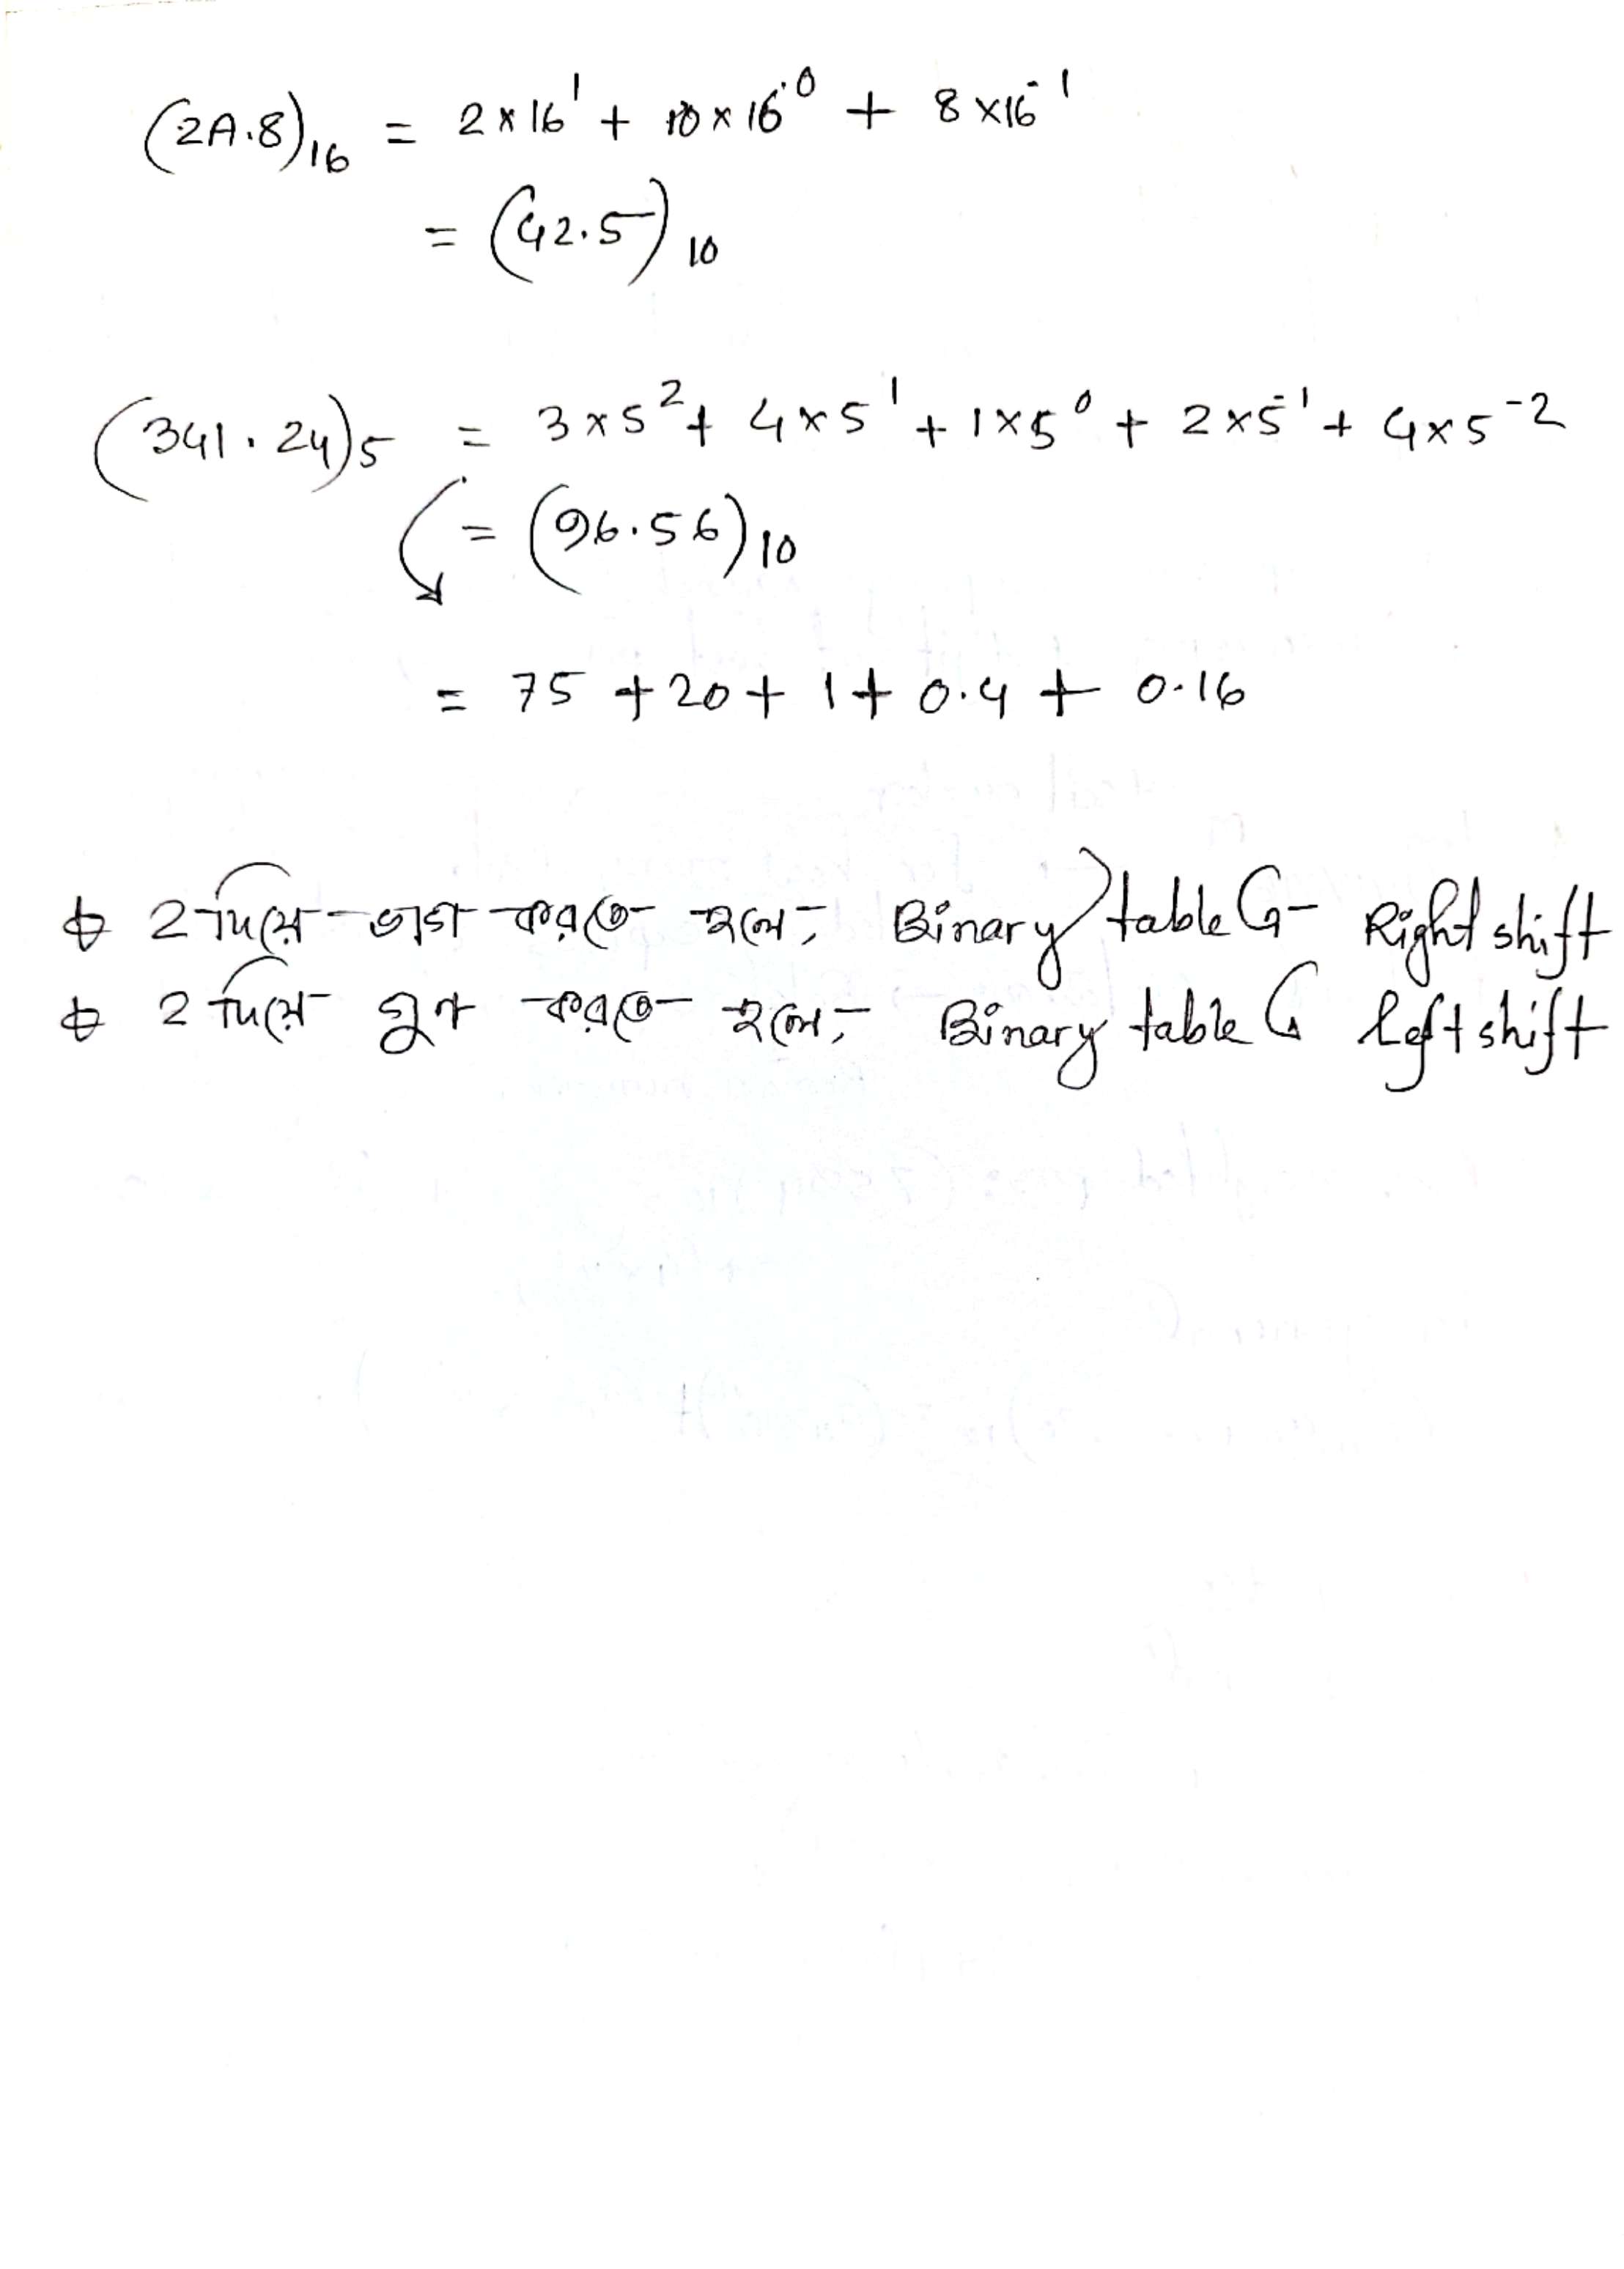 (2A.8)₁₆ = 2 × 16¹ + 10 × 16⁰ + 8 × 16⁻¹
= (42.5)₁₀
(341.24)₅ = 3 × 5² + 4 × 5¹ + 1 × 5⁰ + 2 × 5⁻¹ + 4 × 5⁻²
= (96.56)₁₀
= 75 + 20 + 1 + 0.4 + 0.16
2 দিয়ে ভাগ করতে হলে, Binary table এ Right shift
2 দিয়ে গুন করতে হলে, Binary table এ left shift